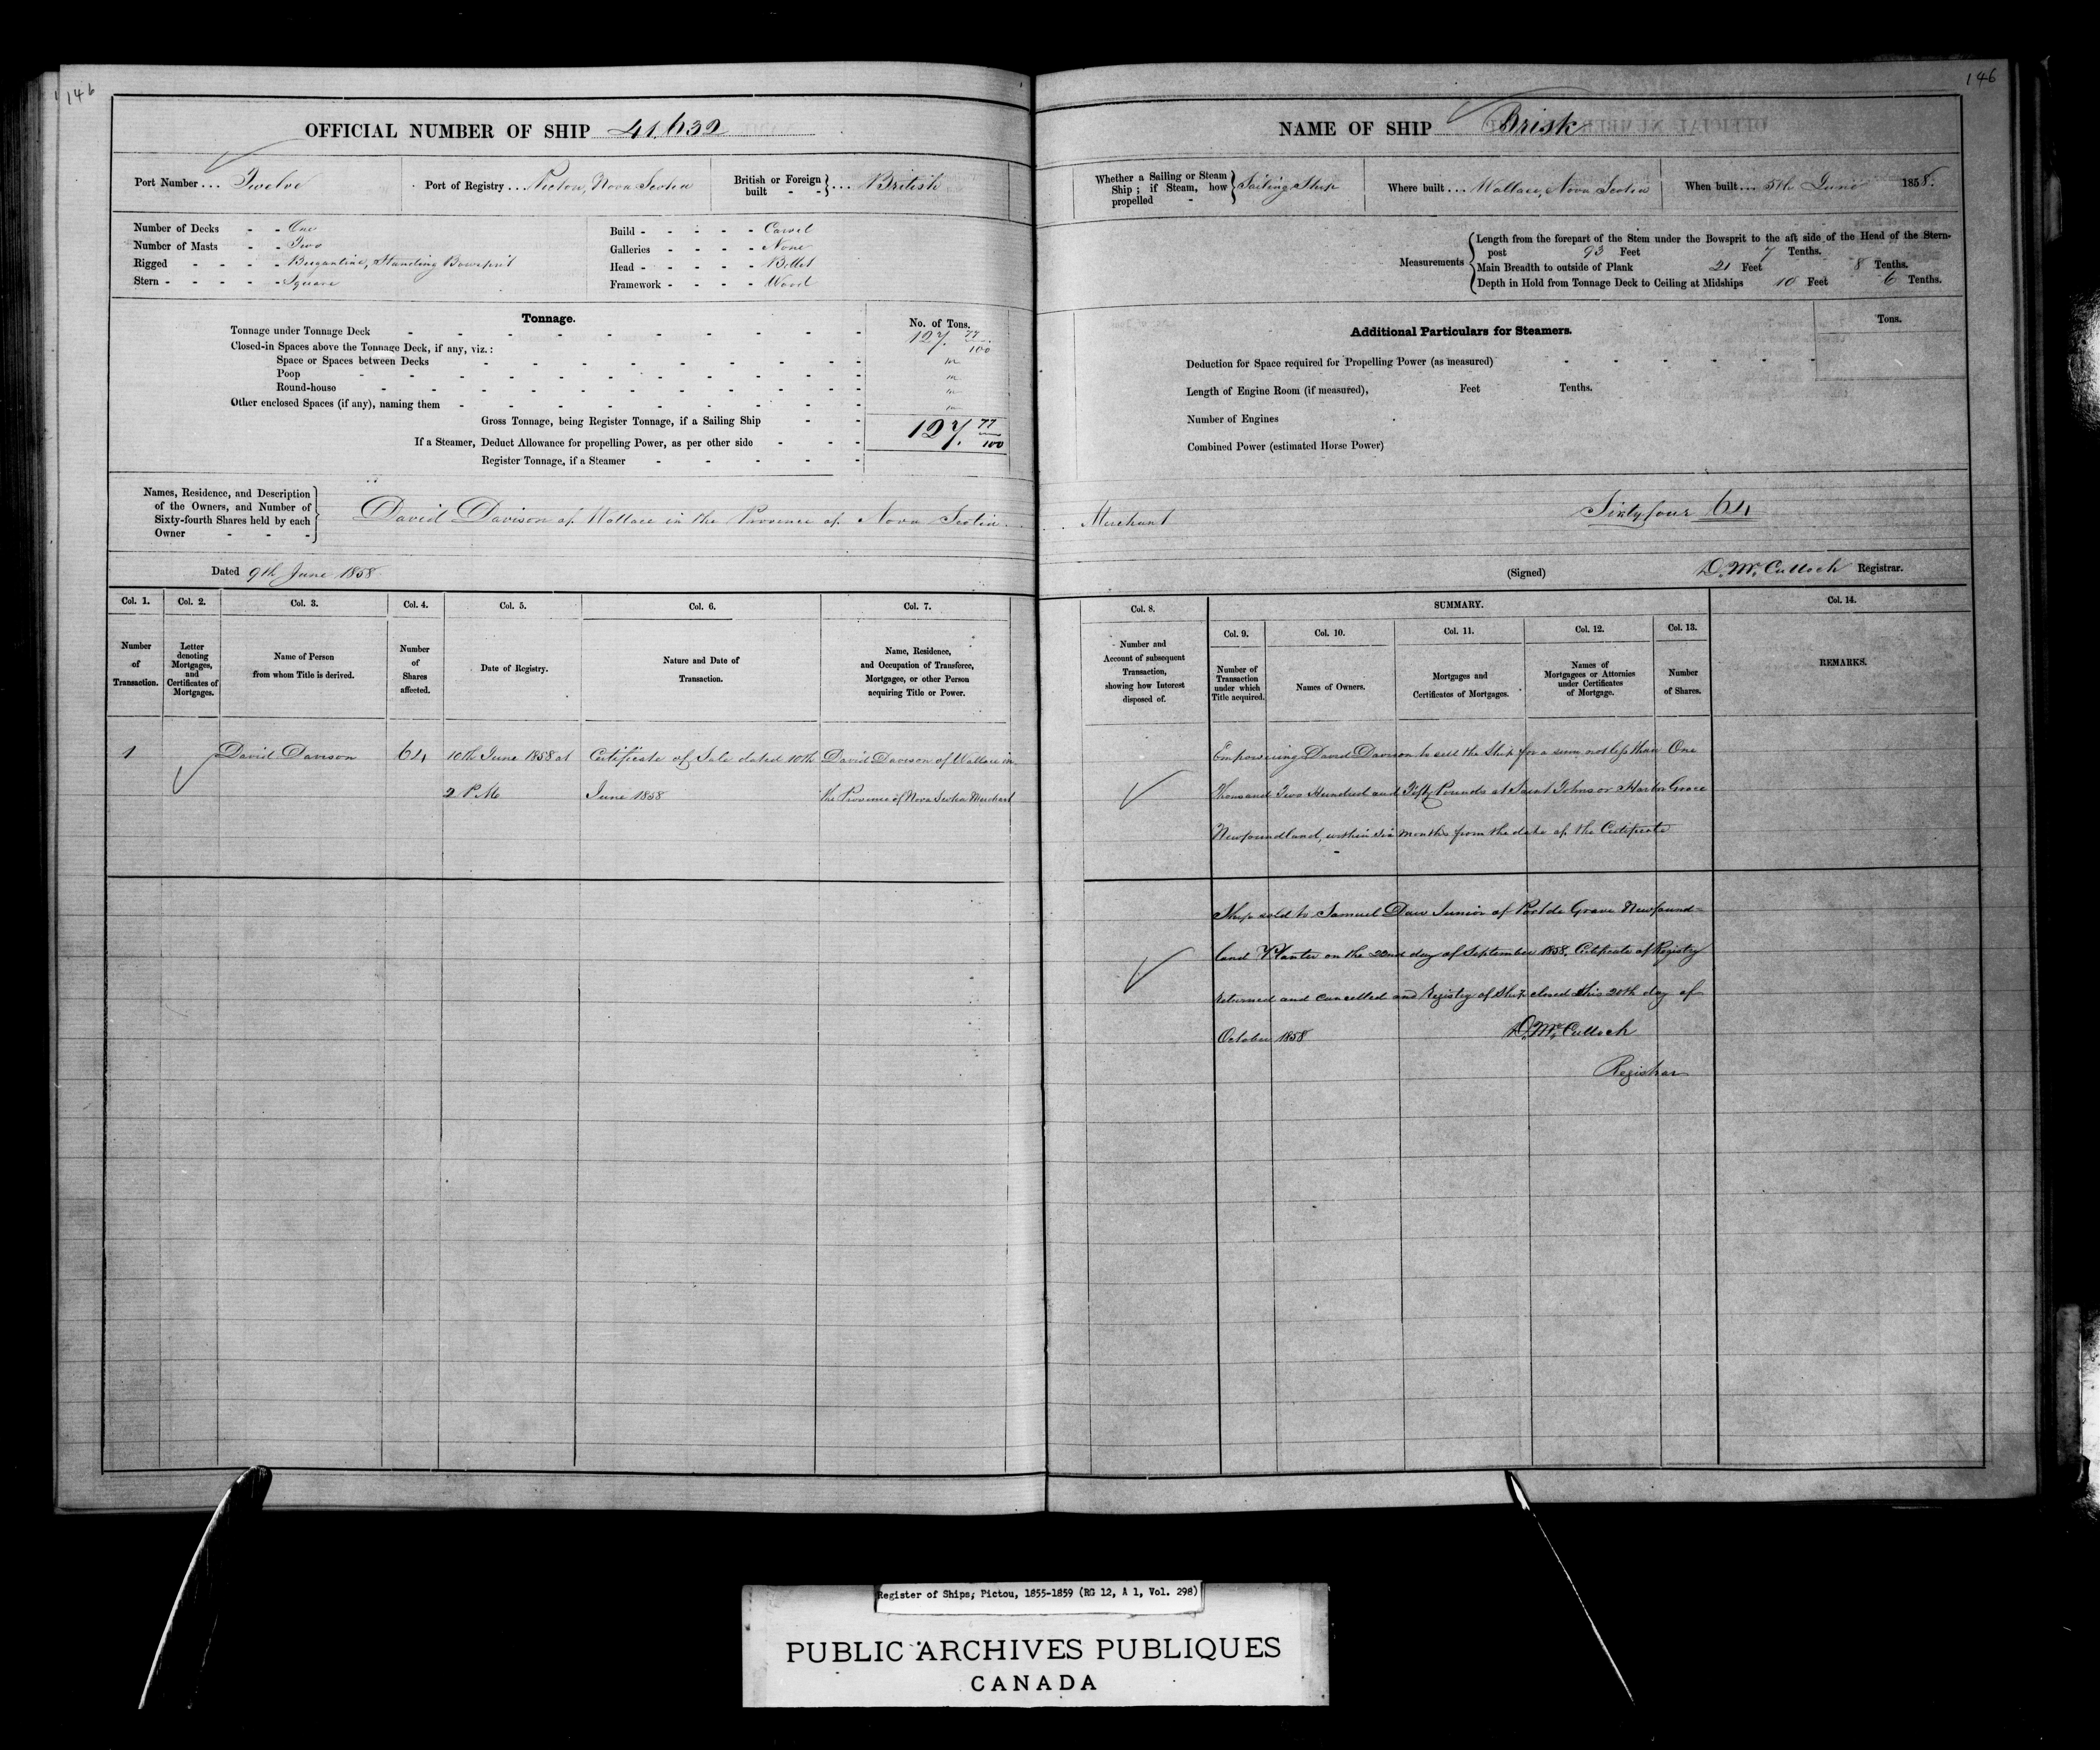 146
OFFICIAL NUMBER OF SHIP 41,632
Port Number ... Twelve
Port of Registry ... Pictou, Nova Scotia
British or Foreign built - - } ... British
Number of Decks - - One
Number of Masts - - Two
Rigged - - - - Brigantine, Standing Bowsprit
Stern - - - - - Square
Build - - - - - Carvel
Galleries - - - - None
Head - - - - - Billet
Framework - - - - Wood
Tonnage.
No. of Tons.
Tonnage under Tonnage Deck 127. 77/100
Closed-in Spaces above the Tonnage Deck, if any, viz.:
Space or Spaces between Decks
Poop
Round-house
Other enclosed Spaces (if any), naming them
Gross Tonnage, being Register Tonnage, if a Sailing Ship 127. 77/100
If a Steamer, Deduct Allowance for propelling Power, as per other side
Register Tonnage, if a Steamer
Names, Residence, and Description of the Owners, and Number of Sixty-fourth Shares held by each Owner - - -
David Davison of Wallace in the Province of Nova Scotia
Dated 9th June 1858
Col. 1. Number of Transaction.
Col. 2. Letter denoting Mortgages, and Certificates of Mortgages.
Col. 3. Name of Person from whom Title is derived.
Col. 4. Number of Shares affected.
Col. 5. Date of Registry.
Col. 6. Nature and Date of Transaction.
Col. 7. Name, Residence, and Occupation of Transferee, Mortgagee, or other Person acquiring Title or Power.
1 David Davison 64 10th June 1858 at Certificate of Sale dated 10th David Davison of Wallace in
2 P.M. June 1858 the Province of Nova Scotia Merchant
146
NAME OF SHIP Brisk
Whether a Sailing or Steam Ship; if Steam, how propelled - } Sailing Ship
Where built ... Wallace, Nova Scotia
When built ... 5th June 1858.
Measurements
Length from the forepart of the Stem under the Bowsprit to the aft side of the Head of the Stern-
post 93 Feet 7 Tenths.
Main Breadth to outside of Plank 21 Feet 8 Tenths.
Depth in Hold from Tonnage Deck to Ceiling at Midships 10 Feet 6 Tenths.
Additional Particulars for Steamers.
Tons.
Deduction for Space required for Propelling Power (as measured)
Length of Engine Room (if measured), Feet Tenths.
Number of Engines
Combined Power (estimated Horse Power)
Merchant Sixty four 64
(Signed) D. McCulloch Registrar.
Col. 8. Number and Account of subsequent Transaction, showing how Interest disposed of.
SUMMARY.
Col. 9. Number of Transaction under which Title acquired.
Col. 10. Names of Owners.
Col. 11. Mortgages and Certificates of Mortgages.
Col. 12. Names of Mortgagees or Attornies under Certificates of Mortgage.
Col. 13. Number of Shares.
Col. 14. REMARKS.
Empowering David Davison to sell the Ship for a sum not less than One
thousand Two Hundred and Fifty Pounds at Saint Johns or Harbor Grace
Newfoundland, within six months from the date of the Certificate
Ship sold to Samuel Daw Junior of Port de Grave Newfound-
land Planter on the 22nd day of September 1858. Certificate of Registry
returned and cancelled and Registry of Ship closed this 20th day of
October 1858 D. McCulloch
Registrar
Register of Ships; Pictou, 1855-1859 (RG 12, A 1, Vol. 298)
PUBLIC ARCHIVES PUBLIQUES
CANADA